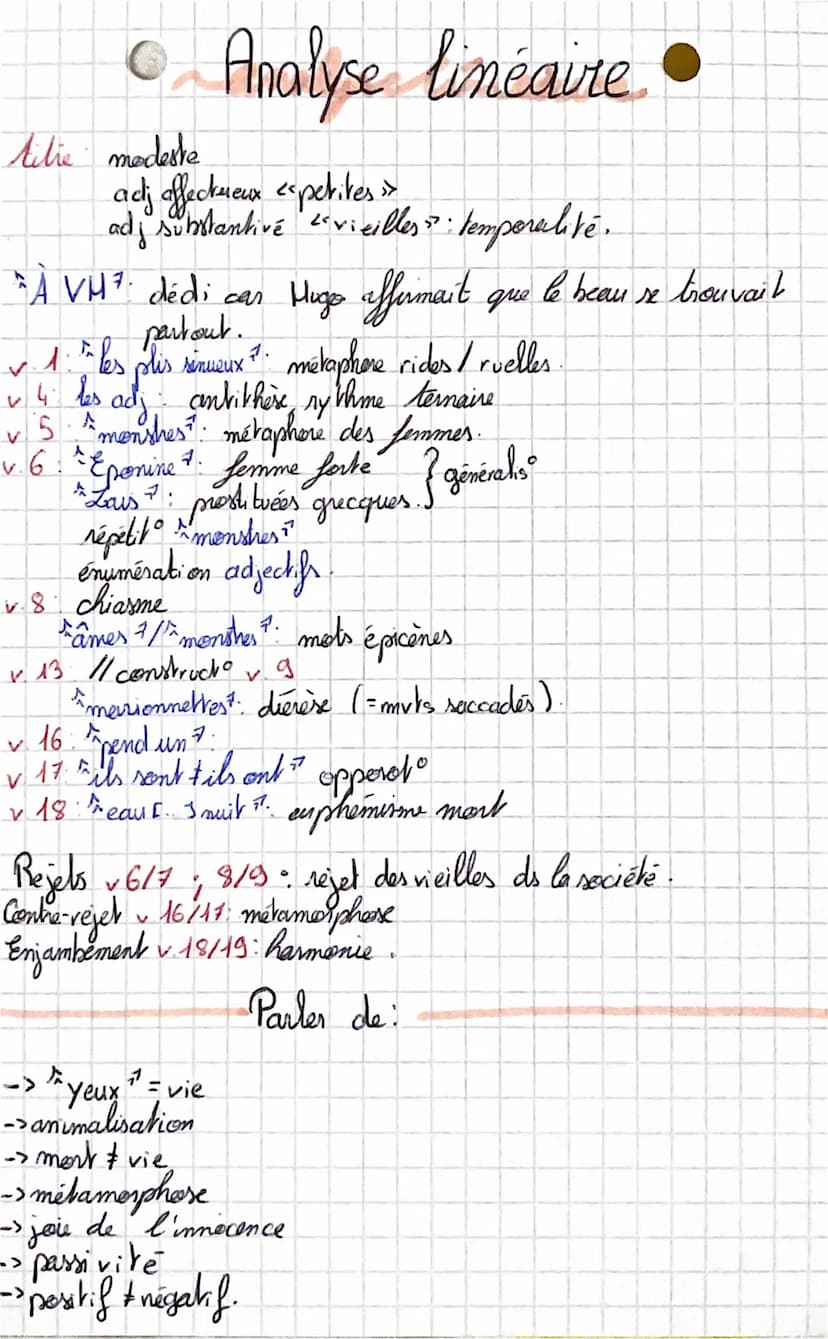 Analyse linéaire
titre : modeste
adj affectueux «petites»
adj substantivé "vieilles" : temporalité.
"À VH" : dédi car Hugo affirmait que le beau se trouvait
partout.
v 1 : "les plis sinueux" : métaphore rides / ruelles.
v 4 : les adj : antithèse, rythme ternaire
v 5 : "monstres" : métaphore des femmes.
v.6 : "Eponine" : femme forte } généralis°
"Laïs" : prostituées grecques.
répétit° "monstres"
énumération adjectifs.
v.8 : chiasme
"âmes" / "monstres" : mots épicènes
v 13 // construct° v.9
"marionnettes" : diérèse (= mvts saccadés).
v 16 : "pend un" :
v 17 : "ils sont ≠ ils ont" opposit°
v 18 : "eau [..] nuit" : euphémisme mort
Rejets v 6/7 ; 8/9 : rejet des vieilles ds la société.
Contre-rejet v 16/17 : métamorphose
Enjambement v.18/19 : harmonie.
Parler de :
-> "yeux" = vie
-> animalisation
-> mort ≠ vie
-> métamorphose
-> joie de l'innocence
-> passivité
-> positif ≠ négatif.